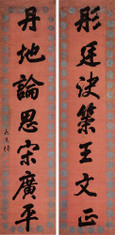 彤廷決策王文正
丹地論思宋廣平